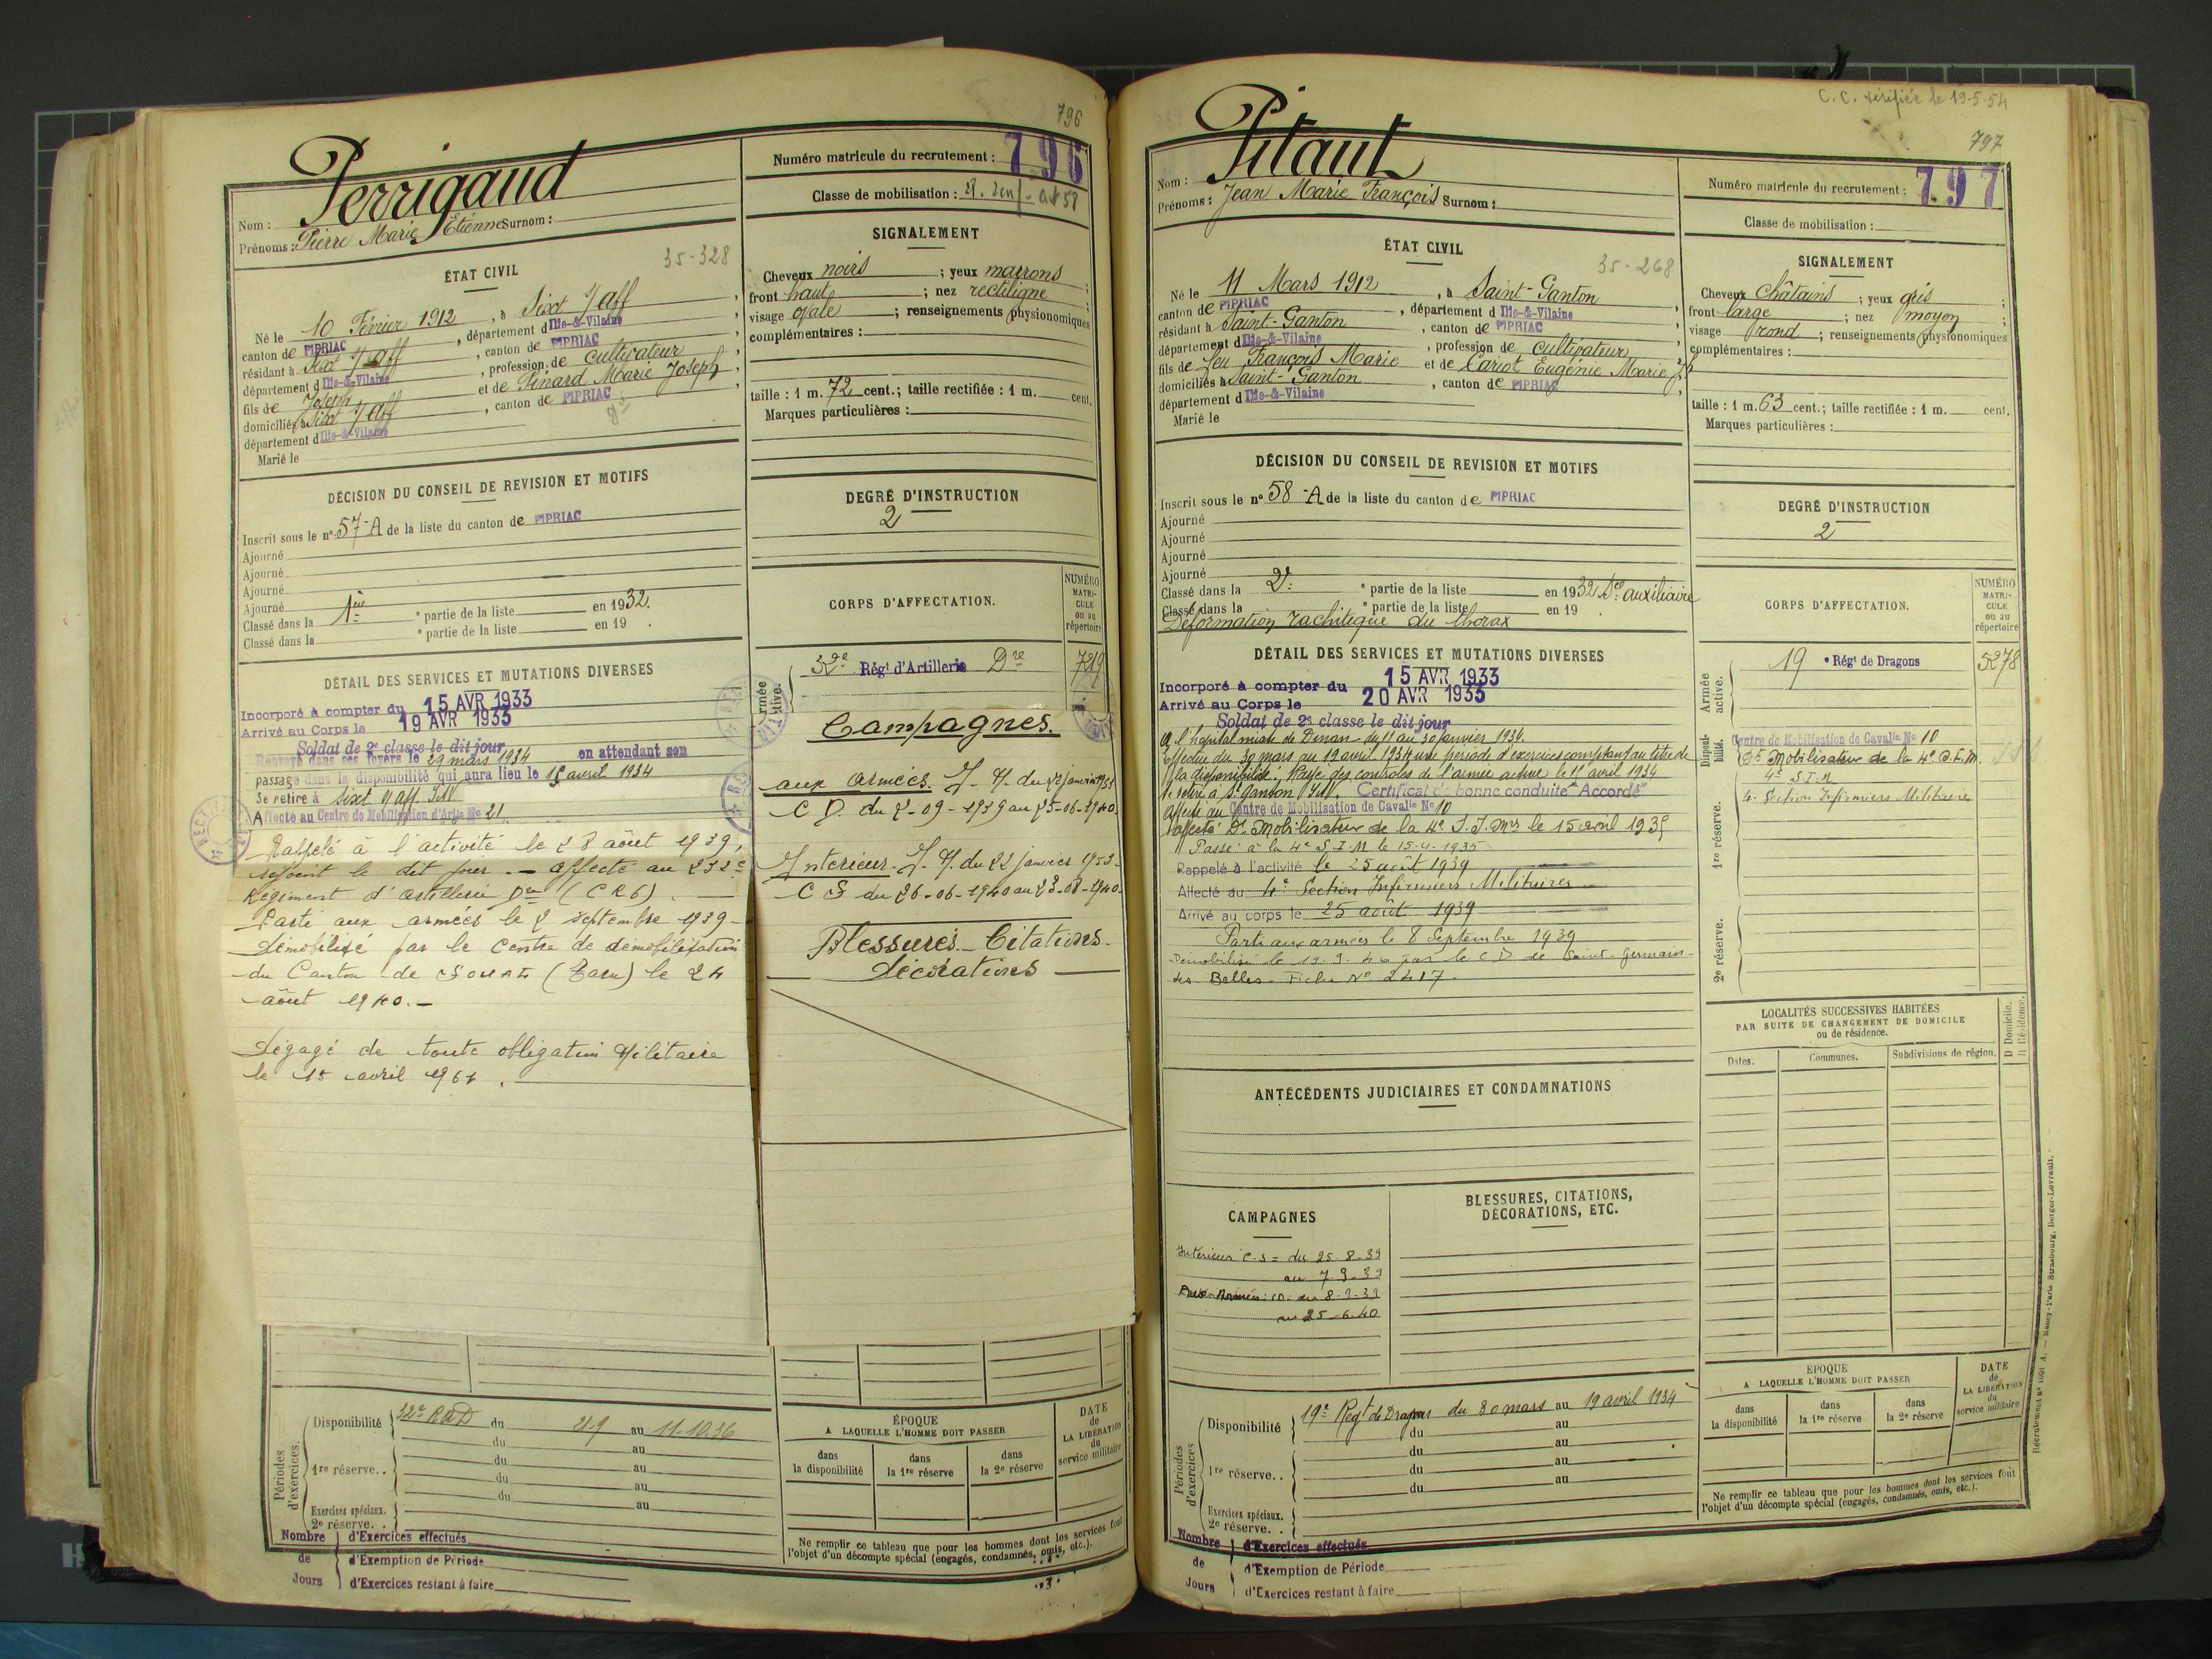 796
Perrigaud
Nom :
Prénoms : Pierre Marie Étienne Surnom :
Numéro matricule du recrutement : 796
Classe de mobilisation :
35-328
ÉTAT CIVIL
Né le 10 Février 1912, à Sixt s/ aff,
canton de PIPRIAC, département d Ille-&-Vilaine
résidant à Sixt s/ aff, canton de PIPRIAC
département d Ille-&-Vilaine, profession de cultivateur
fils de Joseph et de Pinard Marie Joseph,
domiciliés à Sixt s/ aff, canton de PIPRIAC
département d Ille-&-Vilaine
Marié le
SIGNALEMENT
Cheveux noirs ; yeux marrons ;
front haut ; nez rectiligne ;
visage ovale ; renseignements physionomiques
complémentaires :
taille : 1 m. 72 cent.; taille rectifiée : 1 m. cent.
Marques particulières :
DÉCISION DU CONSEIL DE REVISION ET MOTIFS
Inscrit sous le n° 57-A de la liste du canton de PIPRIAC
Ajourné
Ajourné
Ajourné
Ajourné
Classé dans la 1ère * partie de la liste en 1932.
Classé dans la * partie de la liste en 19 .
DEGRÉ D'INSTRUCTION
2
CORPS D'AFFECTATION.
NUMÉRO MATRI-CULE ou au répertoire
32e Rég' d'Artillerie Dre
Armée active.
DÉTAIL DES SERVICES ET MUTATIONS DIVERSES
Incorporé à compter du 15 AVR 1933
Arrivé au Corps le 19 AVR 1933
Soldat de 2e classe le dit jour
Renvoyé dans ses foyers le 29 mars 1934 en attendant son
passage dans la disponibilité qui aura lieu le 15 avril 1934
Se retire à Sixt s/ aff. I&V
Affecté au Centre de Mobilisation d'Artie No 21
Rappelé à l'activité le 28 août 1939,
rejoint le dit jour. — affecté au 232e
Régiment d'artillerie Dre (CR6). —
Parti aux armées le 2 septembre 1939 —
Démobilisé par le Centre de démobilisation
du Canton de (Tarn) le 24
août 1940. —
Dégagé de toute obligation Militaire
le 15 avril 1961.
Campagnes.
aux armées. I. M. du 22 janvier 1953
C D. du 2-09-1939 au 25-06-1940.
Intérieur. I. M. du 22 janvier 1953.
C S du 26-06-1940 au 23-08-1940.
Blessures. Citations.
Décorations
Périodes d'exercices.
Disponibilité 32e RAD du 21-9 au 11-10.36
du au
1re réserve. . du au
du au
du au
Exercices spéciaux.
2e réserve. .
Nombre de Jours
d'Exercices effectués
d'Exemption de Période
d'Exercices restant à faire
ÉPOQUE
A LAQUELLE L'HOMME DOIT PASSER
dans la disponibilité
dans la 1re réserve
dans la 2e réserve
DATE de LA LIBÉRATION du service militaire
Ne remplir ce tableau que pour les hommes dont les services font
l'objet d'un décompte spécial (engagés, condamnés, omis, etc.).
C. C. vérifiée le 19-5-54
797
Pitaut
Nom :
Prénoms : Jean Marie François Surnom :
Numéro matricule du recrutement : 797
Classe de mobilisation :
35-268
ÉTAT CIVIL
Né le 11 Mars 1912, à Saint-Ganton
canton de PIPRIAC, département d Ille-&-Vilaine
résidant à Saint-Ganton, canton de PIPRIAC
département d Ille-&-Vilaine, profession de cultivateur
fils de feu François Marie et de Cariot Eugénie Marie
domiciliés à Saint-Ganton, canton de PIPRIAC
département d Ille-&-Vilaine
Marié le
SIGNALEMENT
Cheveux châtains ; yeux gris ;
front large ; nez moyen ;
visage rond ; renseignements physionomiques
complémentaires :
taille : 1 m. 63 cent.; taille rectifiée : 1 m. cent.
Marques particulières :
DÉCISION DU CONSEIL DE REVISION ET MOTIFS
Inscrit sous le n° 58-A de la liste du canton de PIPRIAC
Ajourné
Ajourné
Ajourné
Ajourné
Classé dans la 2e * partie de la liste en 1932 Sce auxiliaire
Classé dans la * partie de la liste en 19 .
Déformation rachitique du thorax
DEGRÉ D'INSTRUCTION
2
CORPS D'AFFECTATION.
NUMÉRO MATRI-CULE ou au répertoire
Armée active.
19 e Rég' de Dragons 5278
Disponibilité.
Centre de Mobilisation de Cavalie No 10
Dt Mobilisateur de la 4e S.I.M.
4e S I M
1re réserve.
4e Section Infirmiers Militaires
2e réserve.
DÉTAIL DES SERVICES ET MUTATIONS DIVERSES
Incorporé à compter du 15 AVR 1933
Arrivé au Corps le 20 AVR 1933
Soldat de 2e classe le dit jour
A l'hôpital mixte de Dinan du 11 au 30 janvier 1934.
Effectue du 30 mars au 19 avril 1934 une période d'exercices comptant au titre de
la disponibilité. Rayé des contrôles de l'armée active le 15 avril 1934
Se retire à St Ganton I&V. Certificat de bonne conduite "Accordé"
Affecté au Centre de Mobilisation de Cavalie No 10
Affecté Dt Mobilisateur de la 4e S.I.Mres le 15 avril 1935
Passé à la 4e S.I.M le 15-4-1935
Rappelé à l'activité le 25 août 1939
Affecté au 4e Section Infirmiers Militaires
Arrivé au corps le 25 août 1939
Parti aux armées le 8 Septembre 1939
Démobilisé le 19.9.40 par le C D de Saint-Germain-
les-Belles. Fiche No 2417.
LOCALITÉS SUCCESSIVES HABITÉES
PAR SUITE DE CHANGEMENT DE DOMICILE
ou de résidence.
Dates. Communes. Subdivisions de région. D Domicile. R Résidence.
ANTÉCÉDENTS JUDICIAIRES ET CONDAMNATIONS
CAMPAGNES
Intérieur C.S = du 25-8-39
au 7-9-39
Aux Armées : CD. du 8-9-39
au 25-6-40
BLESSURES, CITATIONS,
DÉCORATIONS, ETC.
Périodes d'exercices
Disponibilité 19e Régt de Dragons du 30 mars au 19 avril 1934
du au
1re réserve. . du au
du au
du au
Exercices spéciaux.
2e réserve. .
Nombre de Jours
d'Exercices effectués
d'Exemption de Période
d'Exercices restant à faire
ÉPOQUE
A LAQUELLE L'HOMME DOIT PASSER
dans la disponibilité
dans la 1re réserve
dans la 2e réserve
DATE de LA LIBÉRATION du service militaire
Ne remplir ce tableau que pour les hommes dont les services font
l'objet d'un décompte spécial (engagés, condamnés, omis, etc.).